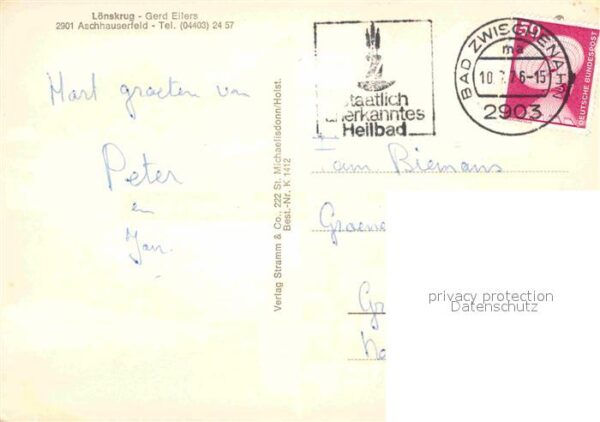 Lönskrug - Gerd Eilers
2901 Aschhauserfeld - Tel. (04403) 24 57
Hart groeten van
Peter
en
Jan.
Verlag Stramm & Co., 222 St. Michaelisdonn/Holst.
Best.-Nr. K 1412
Staatlich
anerkanntes
Heilbad
BAD ZWISCHENAHN
ma
-15
2903
50
DEUTSCHE BUNDESPOST
Fam Biemans
privacy protection
Datenschutz